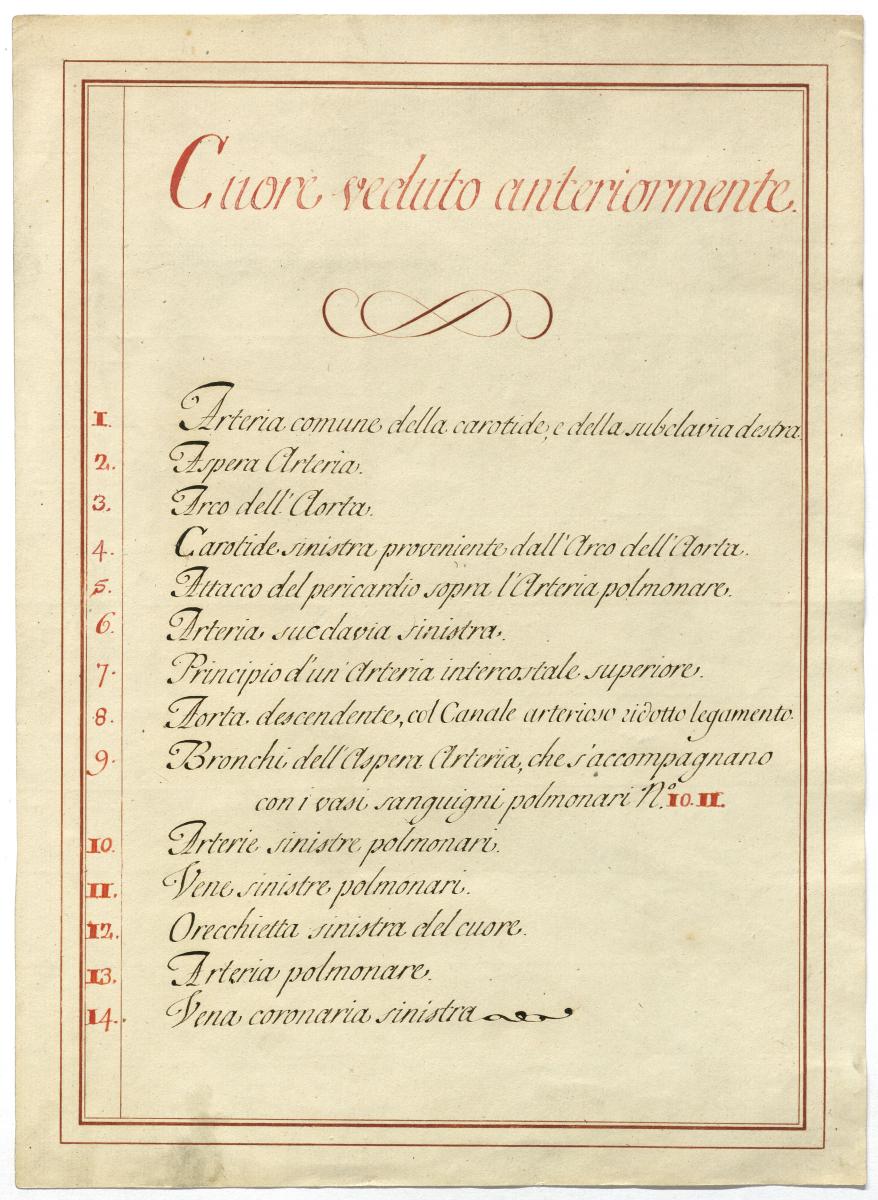 Cuore veduto anteriormente.
1. Arteria comune della carotide, e della subclavia destra.
2. Aspera Arteria.
3. Arco dell'Aorta.
4. Carotide sinistra proveniente dall'Arco dell'Aorta.
5. Attacco del pericardio sopra l'Arteria polmonare.
6. Arteria succlavia sinistra.
7. Principio d'un'Arteria intercostale superiore.
8. Aorta descendente, col Canale arterioso ridotto legamento.
9. Bronchi dell'Aspera Arteria, che s'accompagnano
con i vasi sanguigni polmonari N.º 10. 11.
10. Arterie sinistre polmonari.
11. Vene sinistre polmonari.
12. Orecchietta sinistra del cuore.
13. Arteria polmonare.
14. Vena coronaria sinistra